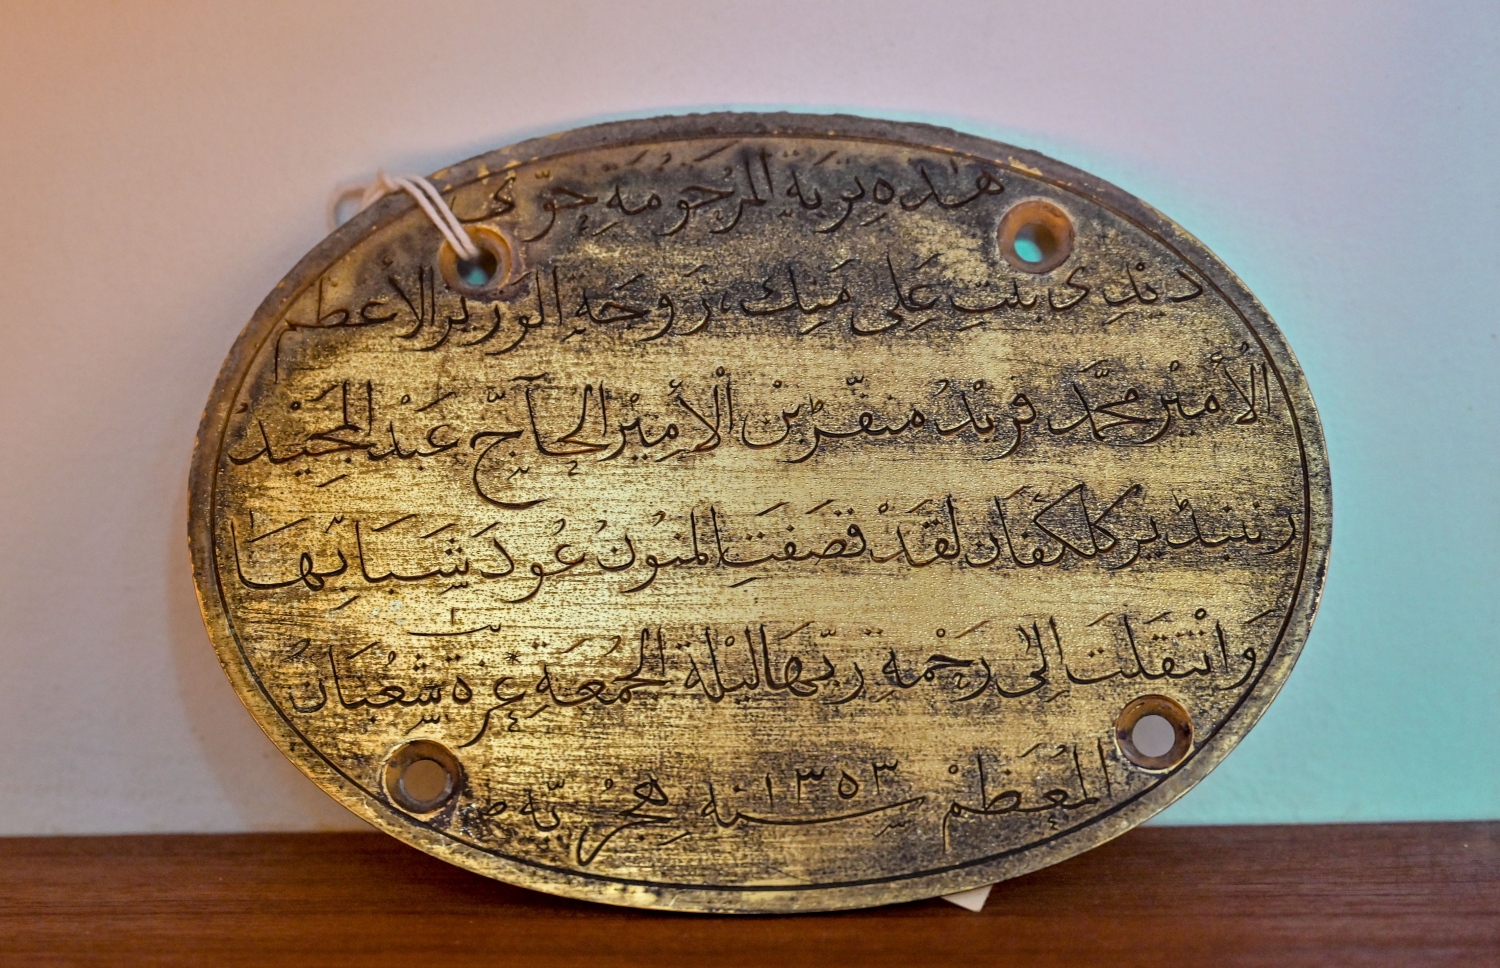 هٰذه تربة المرحومة حوّى
ديدِى بنت عَلِى مَنِك، زَوجَة الوَزير الأعظم
الأمير محمَّد فريدُ منفَّرِّبْن الأمير الحآجّ عَبْد المَجَيْد
رننبدّيركلكفان لَقَدْ قصَفَتِ المنُون عُودَ شَبَابِهَا
وَانْتَقَلَتْ اِلى رَحْمةِ ربّهَا ليْلة الجُمعَة غرّة شَعْبَانَ
المُعَظَمْ سنة ١٣٥٣ هِجْريّة